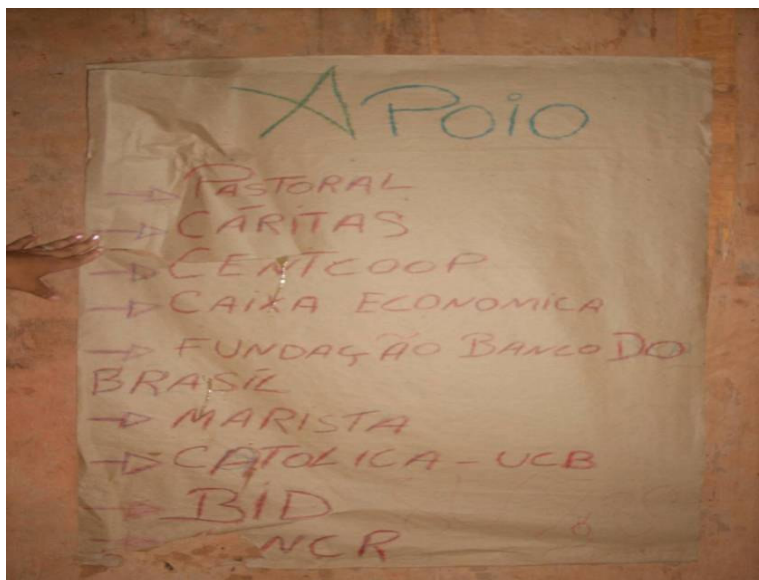 APOIO
→ PASTORAL
→ CÁRITAS
→ CENTCOOP
→ CAIXA ECONOMICA
→ FUNDAÇÃO BANCO DO
BRASIL
→ MARISTA
→ CATOLICA - UCB
→ BID
→ NCR